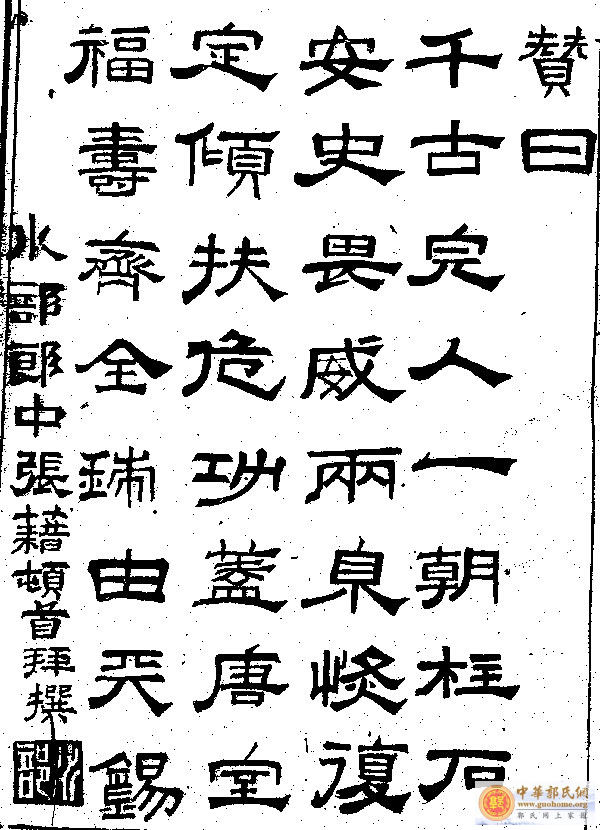 贊曰
千古完人一朝柱石
安史畏威兩京恢復
定傾扶危功蓋唐室
福壽齊全瑞由天錫
水部郎中張籍頓首拜撰
中華郭氏網
www.guohome.org